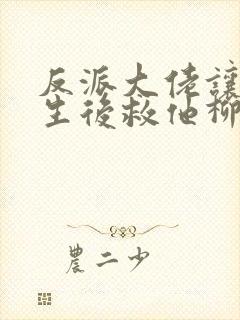 反派大佬讓
生後救他柳
農二少